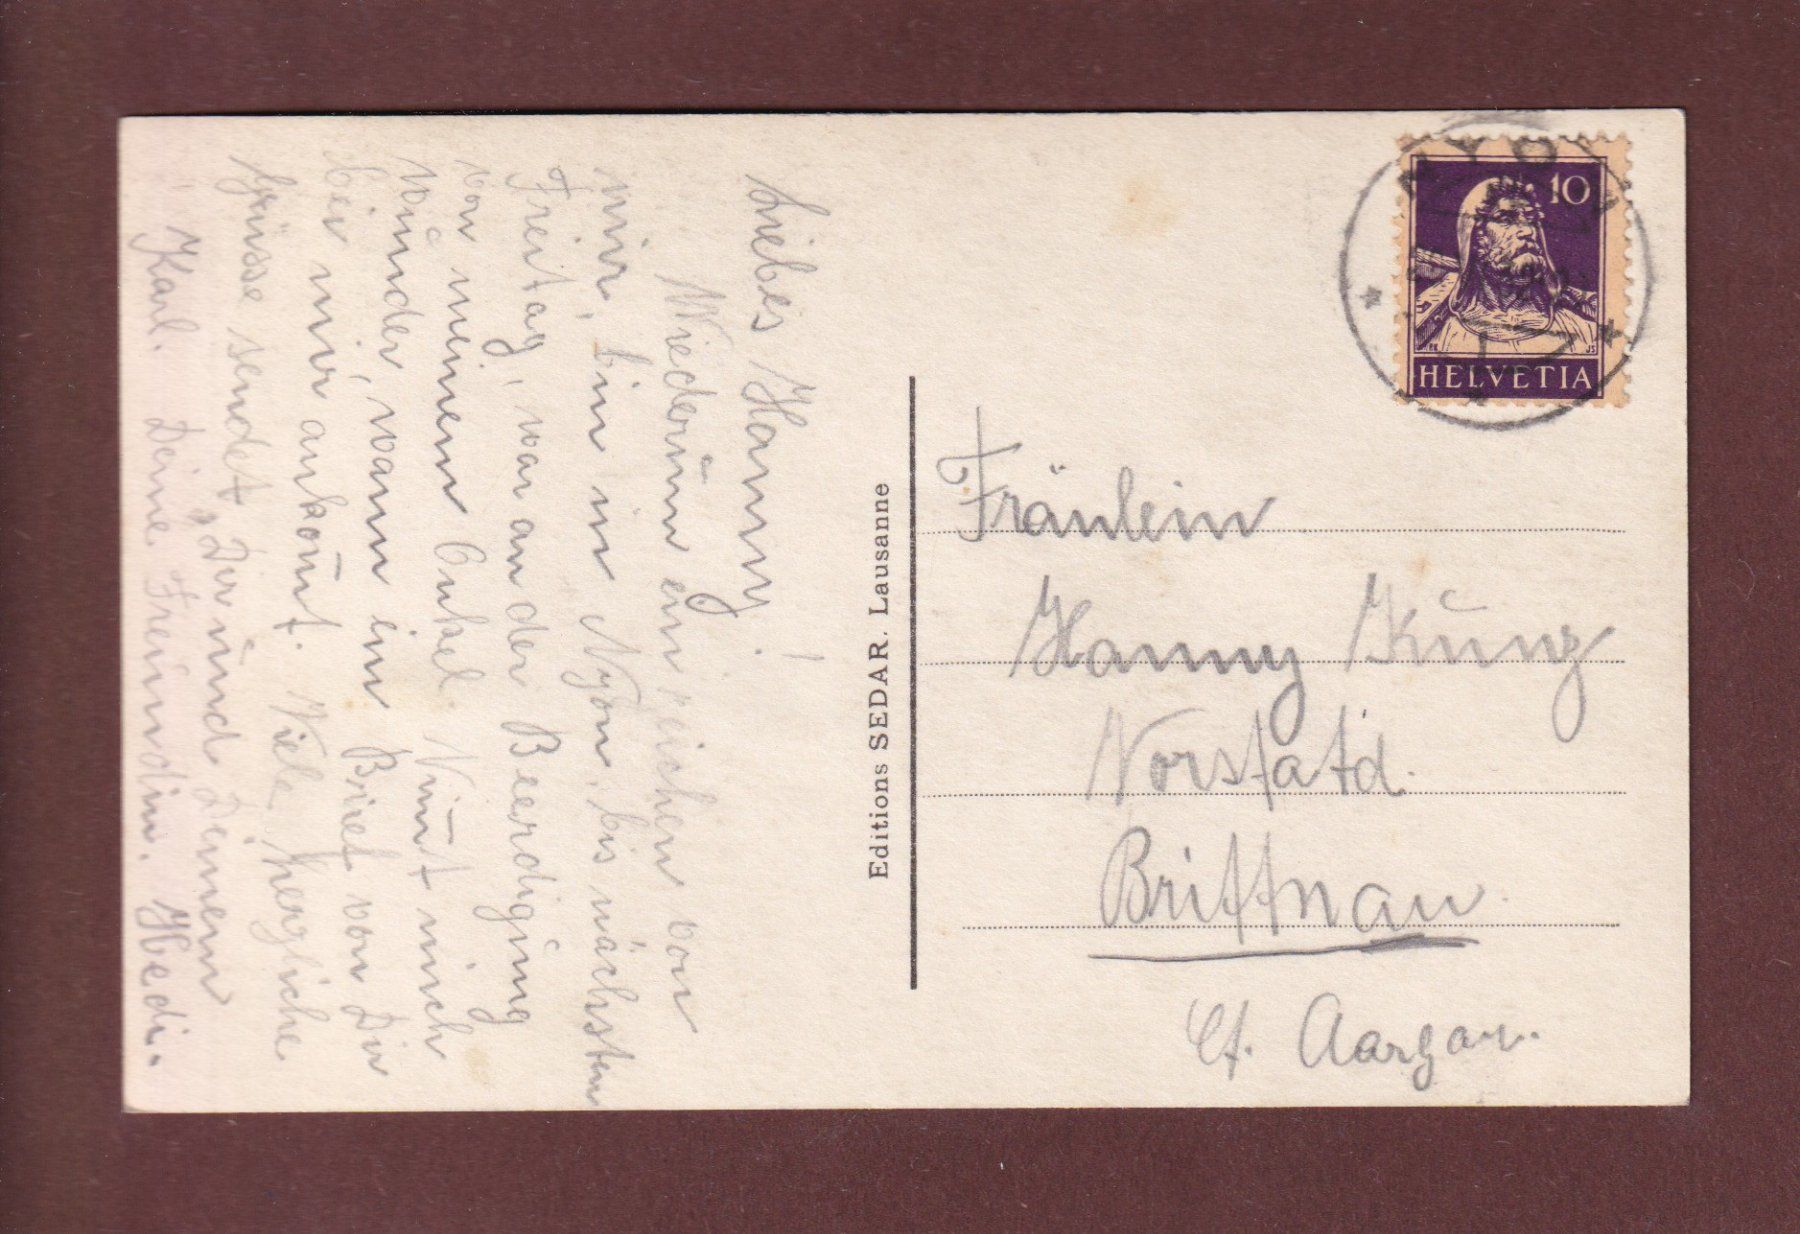 Liebes Hanny!
Wiederum ein Zeichen von
mir, bin in Nyon, bis nächsten
Freitag, war an der Beerdigung
von meinem Onkel. Nim̄t mich
wunder, wann ein Brief von Dir
bei mir ankom̄t. Viele herzliche
Grüsse sendet Dir und Deinem
Karl. Deine Freundin. Hedi.
Editions SEDAR. Lausanne
NYON
10
HELVETIA
Fräulein
Hanny Künz
Vorstatd.
Brittnau.
Ct. Aargau.